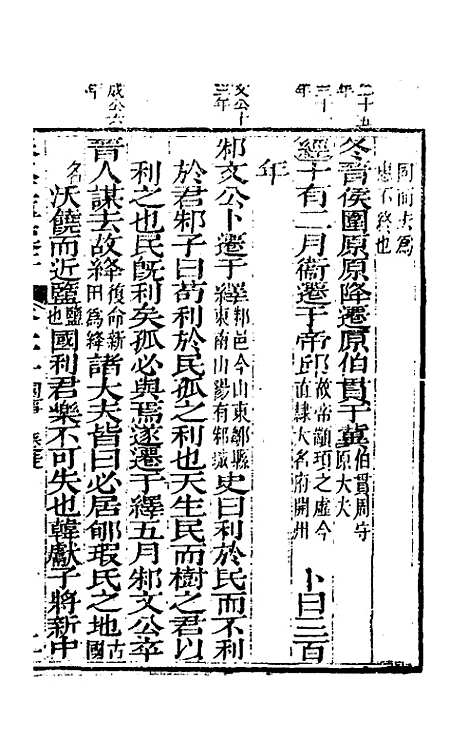 同而去爲
患不終也
冬晉侯圍原原降遷原伯貫于冀伯貫周守原大夫
經十有二月衞遷于帝丘故帝顓頊之虛今直隸大名府開州 卜曰三百
年
文公十三年
邾文公卜遷于繹邾邑今山東鄒縣東南山嶧有邾城史曰利於民而不利
於君邾子曰苟利於民孤之利也天生民而樹之君以
利之也民既利矣孤必與焉遂遷于繹五月邾文公卒
成公六年
晉人謀去故絳復命新田爲絳諸大夫皆曰必居郇瑕氏之地古國
名沃饒而近鹽鹽也國利君樂不可失也韓獻子將新中